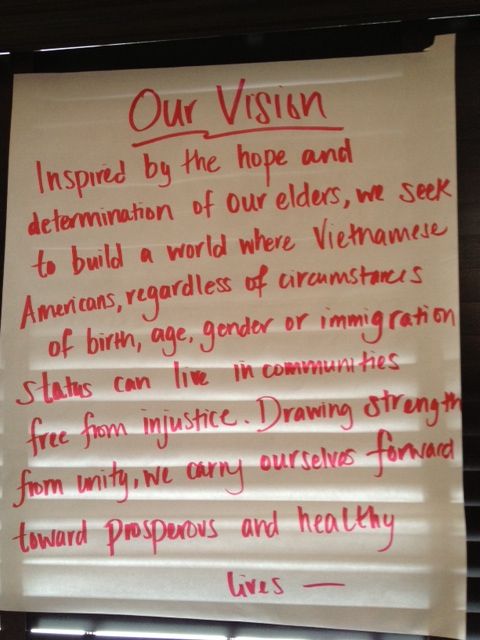 Our Vision
Inspired by the hope and
determination of our elders, we seek
to build a world where Vietnamese
Americans, regardless of circumstances
of birth, age, gender or immigration
status can live in communities
free from injustice. Drawing strength
from unity, we carry ourselves forward
toward prosperous and healthy
lives —